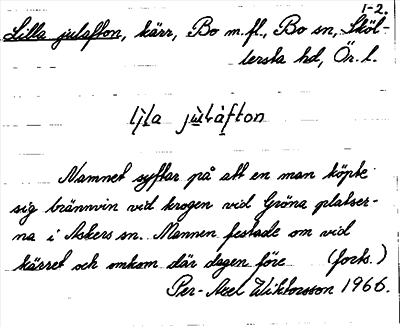 1-2.
Lilla julafton, kärr, Bo m.fl., Bo sn, Sköl-
lersta hd, Ör. l.
lịla jụ̀láfton
Namnet syftar på att en man köpte
sig brännvin vid krogen vid Gröna platser-
na i Askers sn. Mannen festade om vid
kärret och omkom där dagen före (forts.)
Per-Axel Wiktorsson 1966.